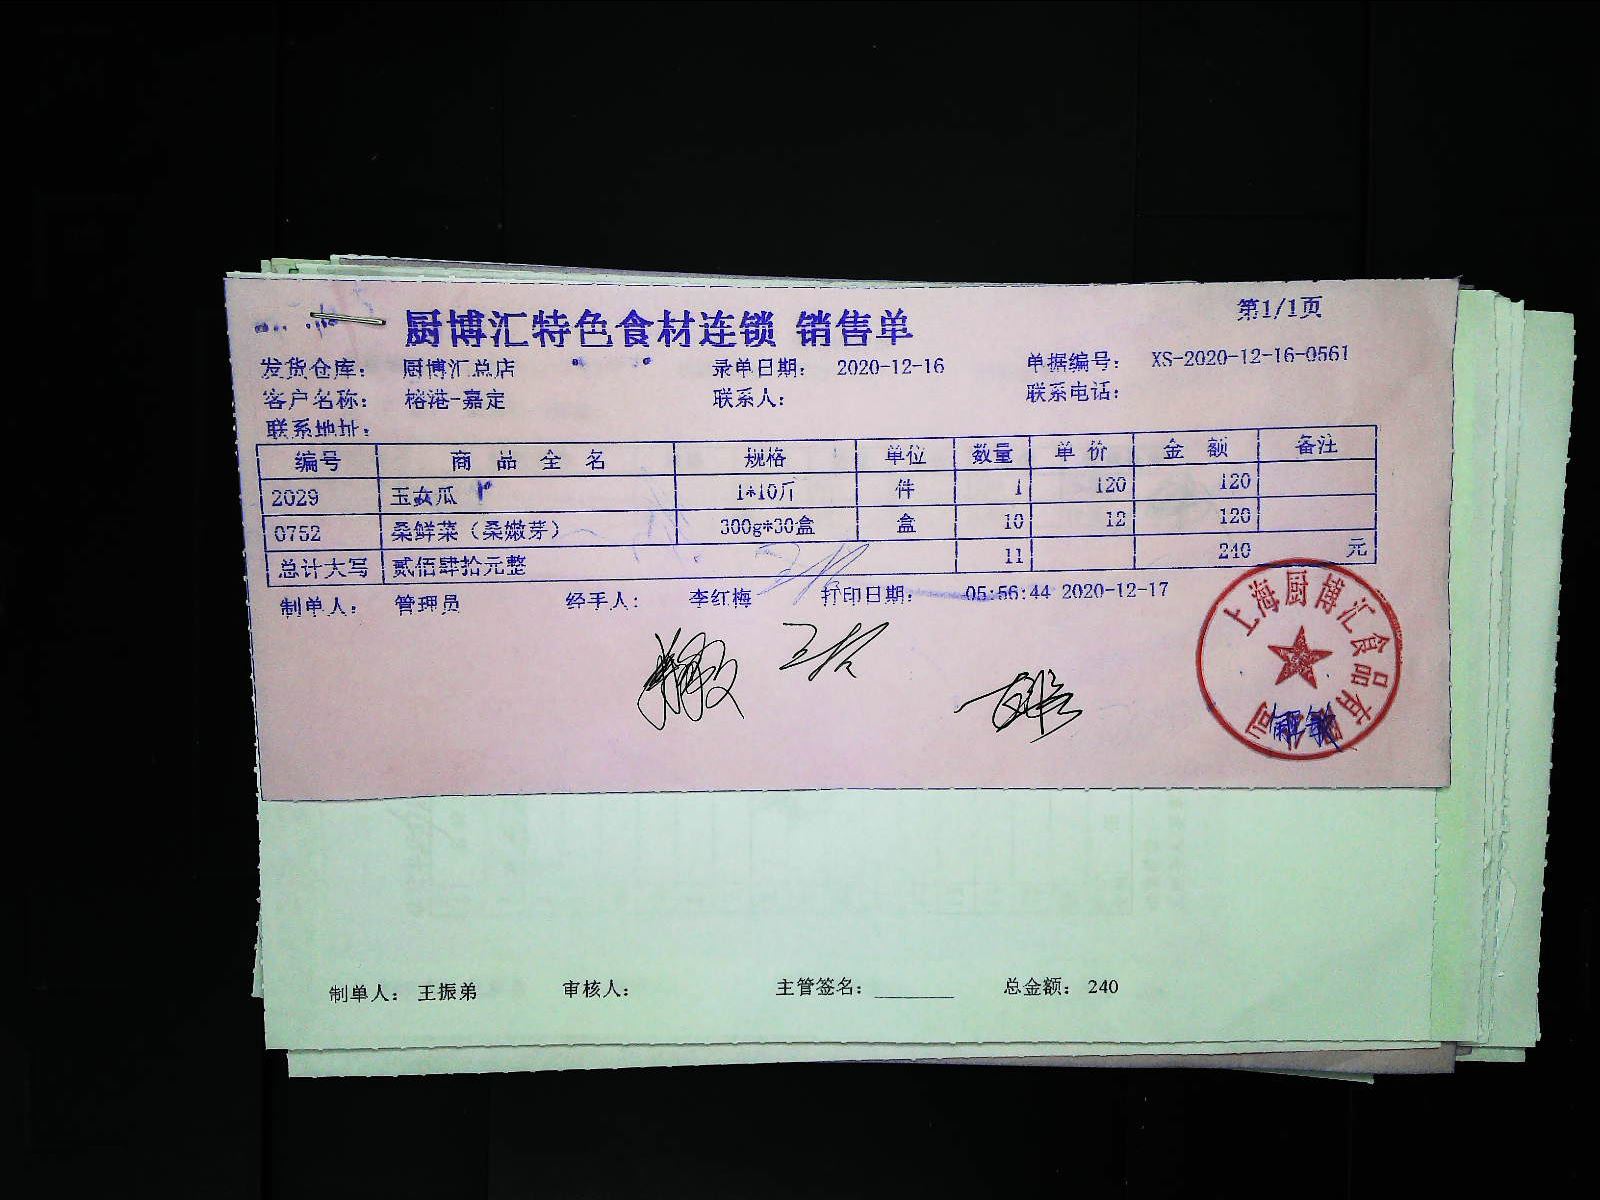 厨博汇特色食材连锁 销售单
第1/1页
发货仓库： 厨博汇总店 录单日期： 2020-12-16 单据编号： XS-2020-12-16-0561
客户名称： 榕港-嘉定 联系人： 联系电话：
联系地址：
编号 商品全名 规格 单位 数量 单价 金额 备注
2029 玉女瓜 1*10斤 件 1 120 120
0752 桑鲜菜（桑嫩芽） 300g*30盒 盒 10 12 120
总计大写 贰佰肆拾元整 11 240 元
制单人： 管理员 经手人： 李红梅 打印日期： 05:56:44 2020-12-17
上海厨博汇食品有限公司
制单人： 王振弟 审核人： 主管签名：________ 总金额： 240